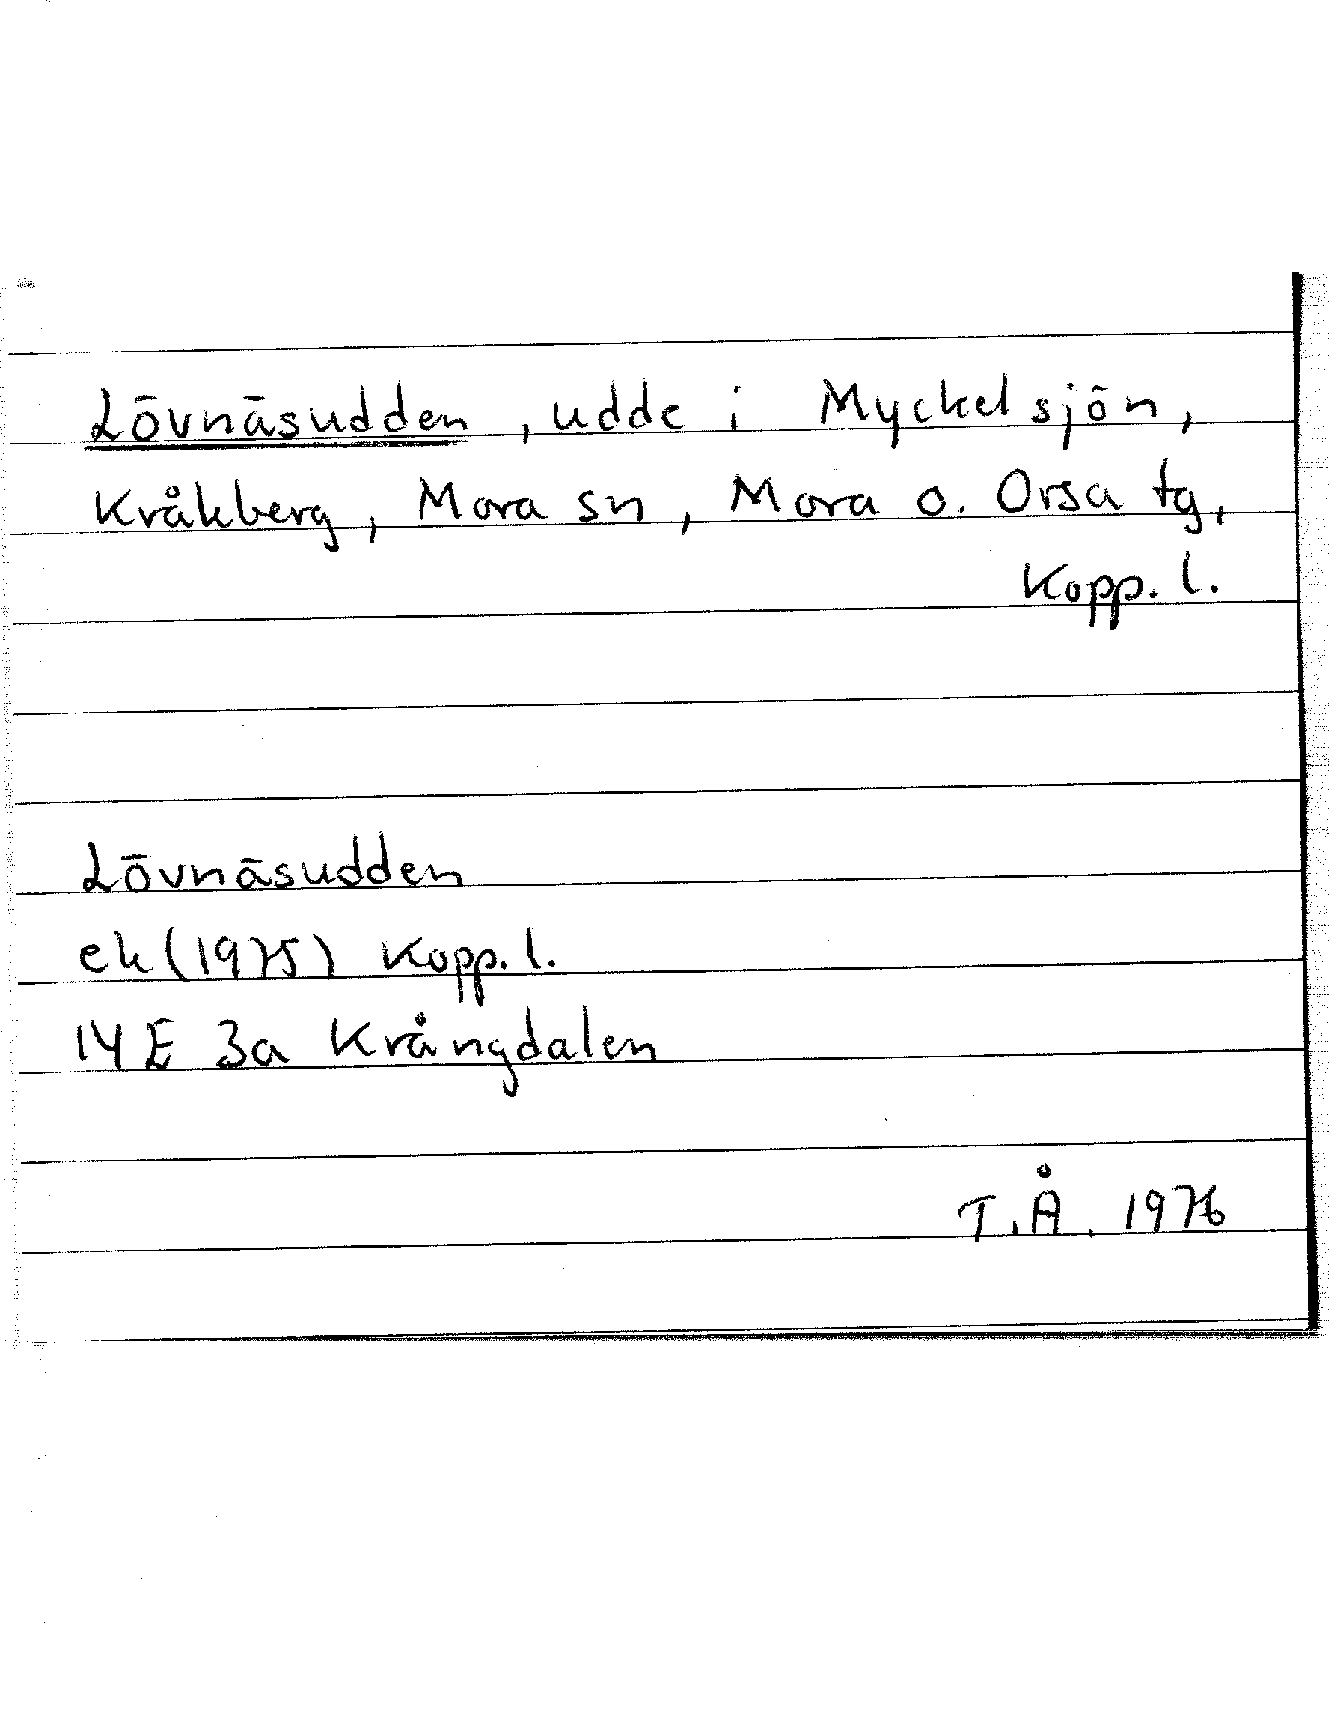 Lövnäsudden, udde i Myckelsjön,
Kråkberg, Mora sn, Mora o. Orsa tg,
Kopp. l.
Lövnäsudden
ek (1975) Kopp. l.
14 E 3a Krångdalen
T.Å. 1976